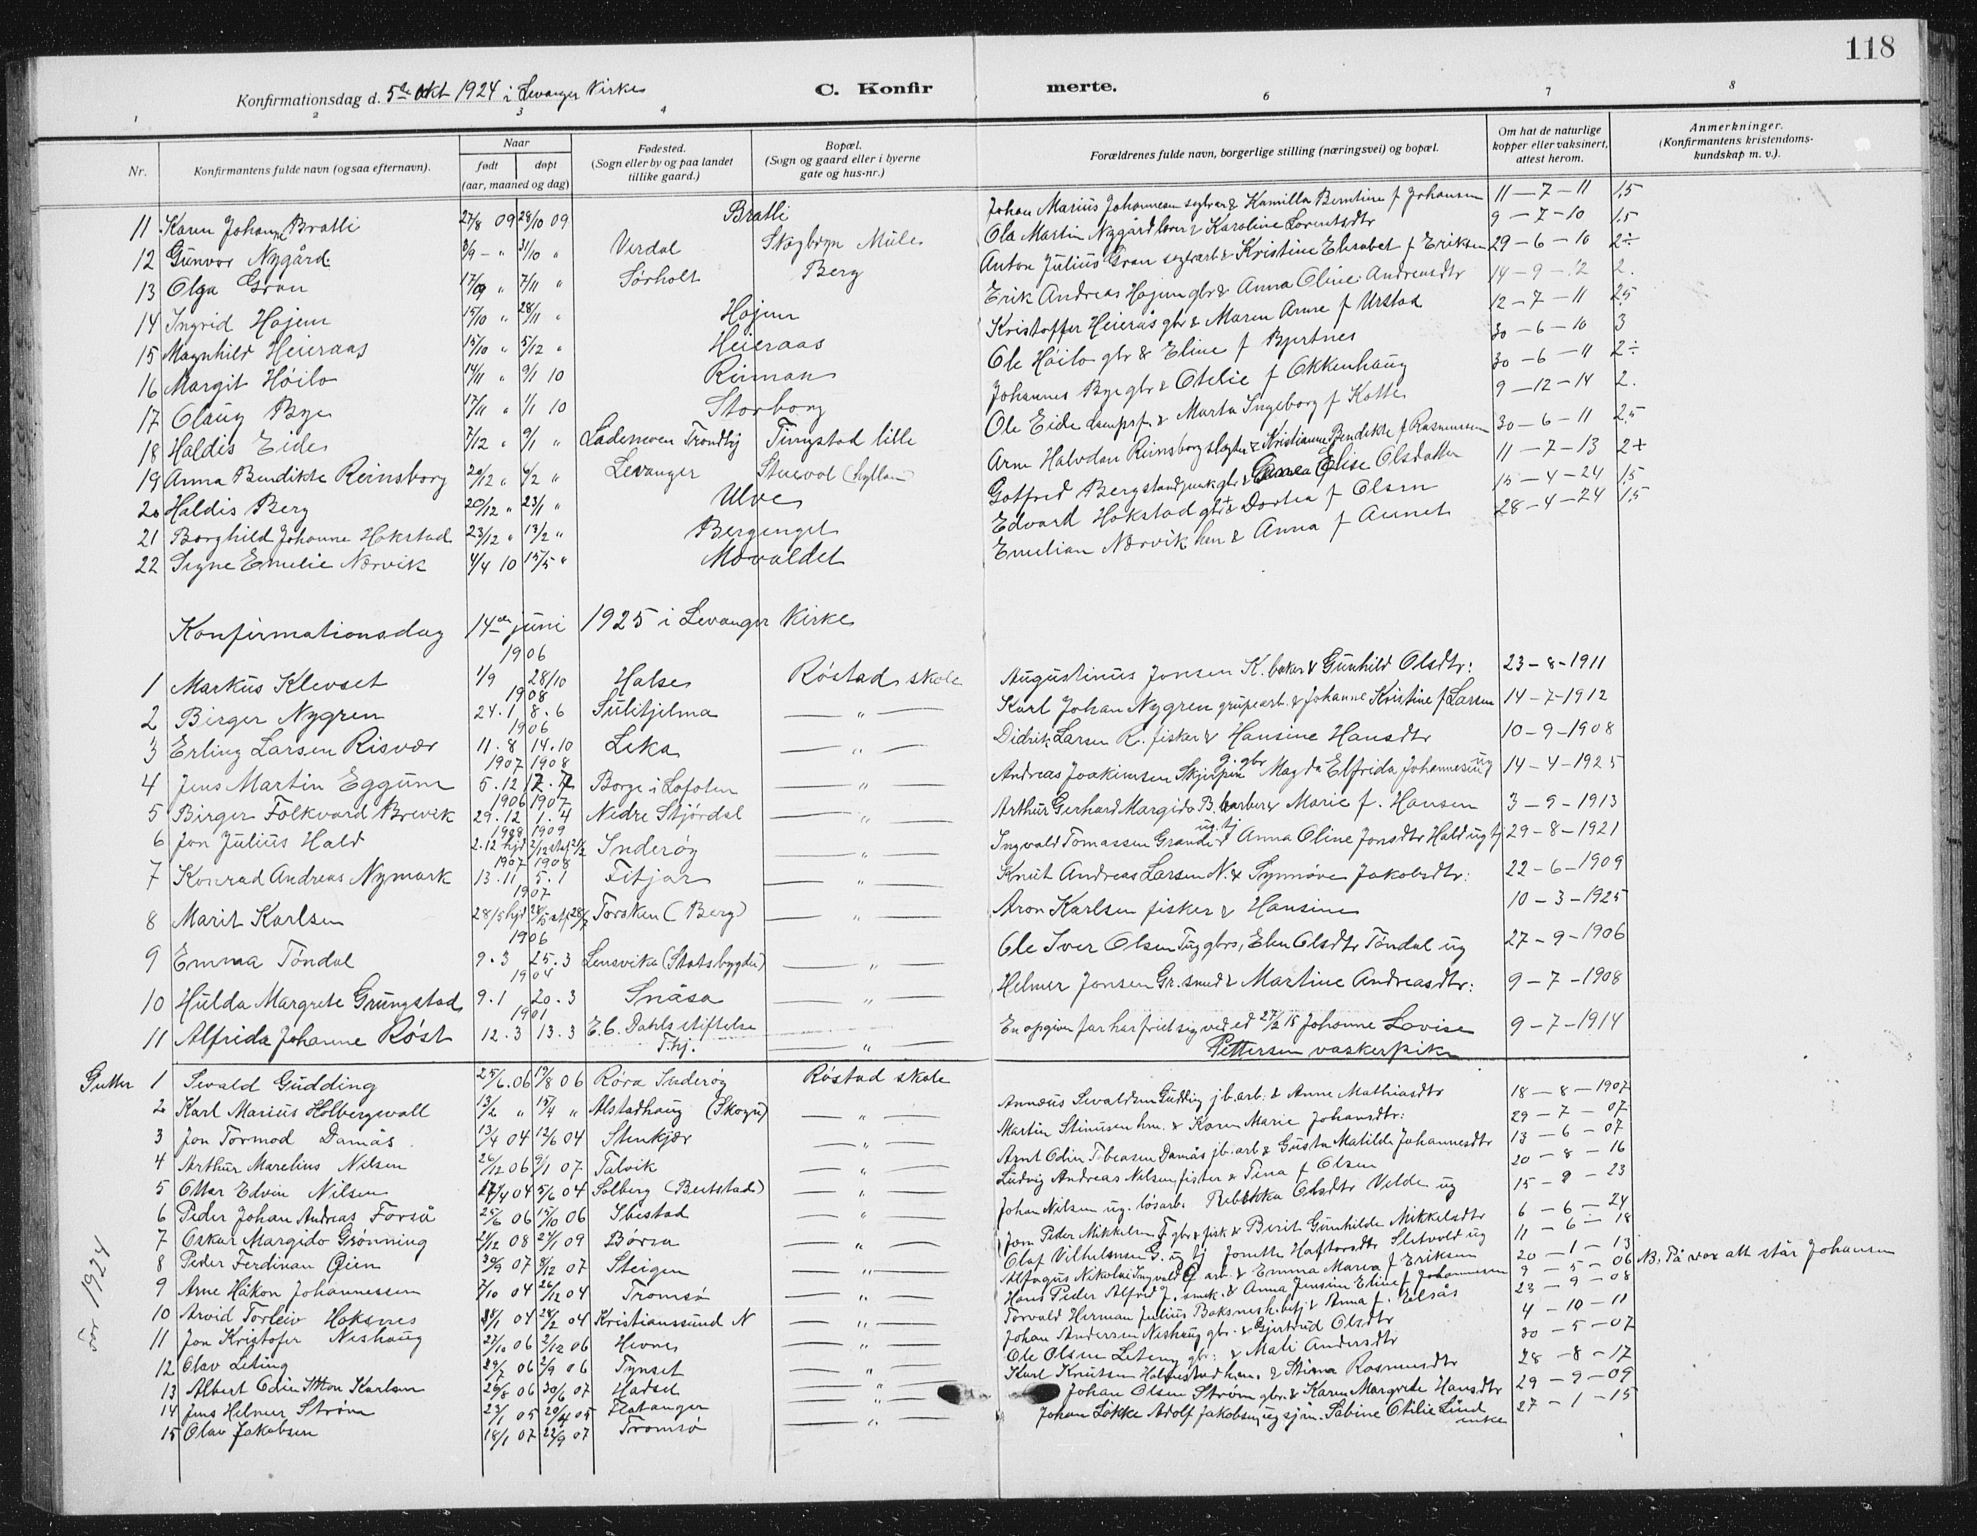 118
Konfirmationsdag d. 5te Okt 1924 i Levanger Kirke
C. Konfirmerte.
1 2 3 4 6 7 8
Nr. Konfirmantens fulde navn (ogsaa efternavn). Naar født døpt (aar, maaned og dag) Fødested. (Sogn eller by og paa landet tillike gaard.) Bopæl. (Sogn og gaard eller i byerne gate og hus-nr.) Forældrenes fulde navn, borgerlige stilling (næringsvei) og bopæl. Om hat de naturlige kopper eller vaksinert, attest herom. Anmerkninger. (Konfirmantens kristendomskundskap m. v.).
11 Karen Johanne Bratli 27/8 09 28/10 09 Bratli Johan Marius Johannesen & Kamilla Berntine f Johansen 11-7-11 1.5
12 Gunvor Nygård 3/9 - " 31/10 " Verdal Skogbryn Mule Ola Martin Nygård lærer & Karoline Lorentsdtr 9-7-10 1.5
13 Olga Gran 17/9 " 7/11 " Sørholt Berg Anton Julius Gran & Kristine Elisabet f Eriksen 29-6-10 2÷
14 Ingrid Hojem 15/10 " 28/11 " Hojem Erik Andreas Hojem gbr & Anna Oline Andreasdtr 14-9-12 2.
15 Magnhild Heieraas 15/10 " 5/12 " Heieraas Kristoffer Heierås gbr & Maren Anne f Urstad 12-7-11 2.5
16 Margit Høilo 14/11 " 9/1 10 Rinnan Ole Høilo gbr & Eline f Bjertnes 30-6-10 3
17 Olaug Bye 17/11 " 1/1 10 Storborg Johannes Bye gbr & Otelie f Okkenhaug 30-6-11 2÷
18 Haldis Eide 7/12 " 9/1 " Lademoen Trondhj Tingstad lille Ole Eide & Marta Ingeborg f Kotte 9-12-14 2.
19 Anna Bendikte Reinsborg 20/12 " 6/2 " Levanger Arne Halvdan Reinsborg & Kristianne Bendikte f Rasmussen 30-6-11 2.5
20 Haldis Berg 20/12 " 23/1 " Ulve Gotfred Berg gbr & Elise Olsdatter 11-7-13 2+
21 Borghild Johanne Hokstad 23/12 " 13/2 " Bergenget Edvard Hokstad gbr & Dortea f Olsen 15-4-24 1.5
22 Signe Emelie Nærvik 4/4 10 15/5 " Movaldet Emilian Nærvik hm & Anna f Aunet 28-4-24 1.5
Konfirmationsdag 14de juni 1925 i Levanger Kirke
1906
1 Markus Klevset 1/9 28/10 Halse Røstad skole Augustinus Jonsen K. baker & Gunhild Olsdtr: 23-8-1911
1908
2 Birger Nygren 24.1 8.6 Sulitjelma " Karl Johan Nygren grupearb. & Johanne Kristine f Larsen 14-7-1912
1906
3 Erling Larsen Risvær 11.8 14.10 Leka " Didrik Larsen R. fisker & Hansine Hansdtr 10-9-1908
1907 1908
4 Jens Martin Eggum 5.12 12.7 Borge i Lofoten " Andreas Joakimsen Skjerpen g. gbr Magda Elfrida Johannesen ug 14-4-1925
1906 1907
5 Birger Folkvard Brevik 29.12 1.4 Nedre Stjørdal " Arthur Gerhard Margido B. barber & Marie f. Hansen 3-9-1913
1908 1909
6 Jon Julius Hald 2.12 hjd 2/12 Inderøy " Ingvald Tomassen Grande ug. tj & Anna Oline Jonsdtr Hald ug tj 29-8-1921
1907 1908
7 Konrad Andreas Nymark 13.11 5.1 Fitjar " Knut Andreas Larsen N. & Synnøve Jakobsdtr: 22-6-1909
1907
8 Marit Karlsen 28/5 hjd Torsken (Berg) " Aron Karlsen fisker & Hansine 10-3-1925
1906
9 Emma Tøndal 9.3 25.3 Lensvika (Statsbygden) " Ole Iver Olsen Elen Olsdtr Tøndal ug 27-9-1906
1904
10 Hulda Margrete Grungstad 9.1 20.3 Snåsa " Helmer Jonsen Gr. smed & Martine Andreasdtr: 9-7-1908
1901
11 Alfrida Johanne Røst 12.3 13.3 E.C. Dahls stiftelse Thj. " En opgiven far har friet sig ved ed 27/2 15 Johanne Lovise Pettersen vaskerpike 9-7-1914
Gutter 1 Sevald Gudding 25/6.06 19/8 06 Røra Inderøy Røstad skole Annæus Sevaldsen Gudding jb.arb. & Anne Mathiasdtr 18-8-1907
2 Karl Marius Holbergsvall 13/2 " 15/4 " Alstadhaug (Skogn) " Martin Stinusen hm. & Karen Marie Johansdtr: 29-7-07
3 Jon Tormod Damås 13/4 04 12/6 04 Stenkjær " Arnt Odin Tobiasen Damås jb.arb & Gusta Matilde Johannesdtr 13-6-07
4 Arthur Marelius Nilsen 26/12 06 9/1 07 Talvik " Ludvig Andreas Nilsen fisker & Tina f Olsen 20-8-16
5 Ottar Edvin Nilsen 17/4 04 5/6 04 Solberg (Beitstad) " Johan Nilsen ug. løsarb. Rebekka Olsdtr Velde ug 15-9-23
6 Peder Johan Andreas Forså 25/6 06 15/10 06 Ibestad " Jon Peder Mikkelsen F gbr & fisk & Berit Gunhilde Mikkelsdtr 6-6-24
7 Oskar Margido Grønning 21/12 08 27/1 09 Børsa " Olaf Vilhelmsen G. ug tj Jonette Haftorsdtr Sletvold ug 11-6-18
8 Peder Ferdinan Øien 30/9 07 8/12 07 Steigen " Alfagus Nikolai Ingvald Ø arb. & Emma Marea f Eriksen 20-1-13 NB. På vax att står Johansen
9 Arne Håkon Johannessen 7/10 04 26/12 04 Tromsø " Hans Peder Alfred J. smed. & Anna Jensine Eline f Johannesen 9-5-06
10 Arvid Torleiv Hoksnes 8/1 04 28/2 04 Kristianssund N " Torvald Herman Julius Boksnes h.betj & Anna f. Eelsås 23-9-08
11 Jon Kristofer Neshaug 27/10 06 2/12 06 Hevne " Johan Andersen Neshaug gbr. & Gjertrud Olsdtr 4-10-11
12 Olav Leting 29/7 06 2/9 06 Tynset " Ole Olsen Leteng gbr: & Mali Andersdtr 30-5-07
13 Albert Odin Karlsen 26/8 06 30/6 07 Hadsel " Karl Knutsen hm. & Stina Rasmusdtr 28-8-17
14 Jens Helmer Strøm 23/1 05 20/4 05 Flatanger " Johan Olsen Strøm gbr. & Karen Margrete Hansdtr 29-9-09
15 Olav Jakobsen 18/1 07 22/9 07 Tromsø " Johan Løkke Adolf Jakobsen ug sjm. Sabine Otilie Lund enke 27-1-15
før 1924